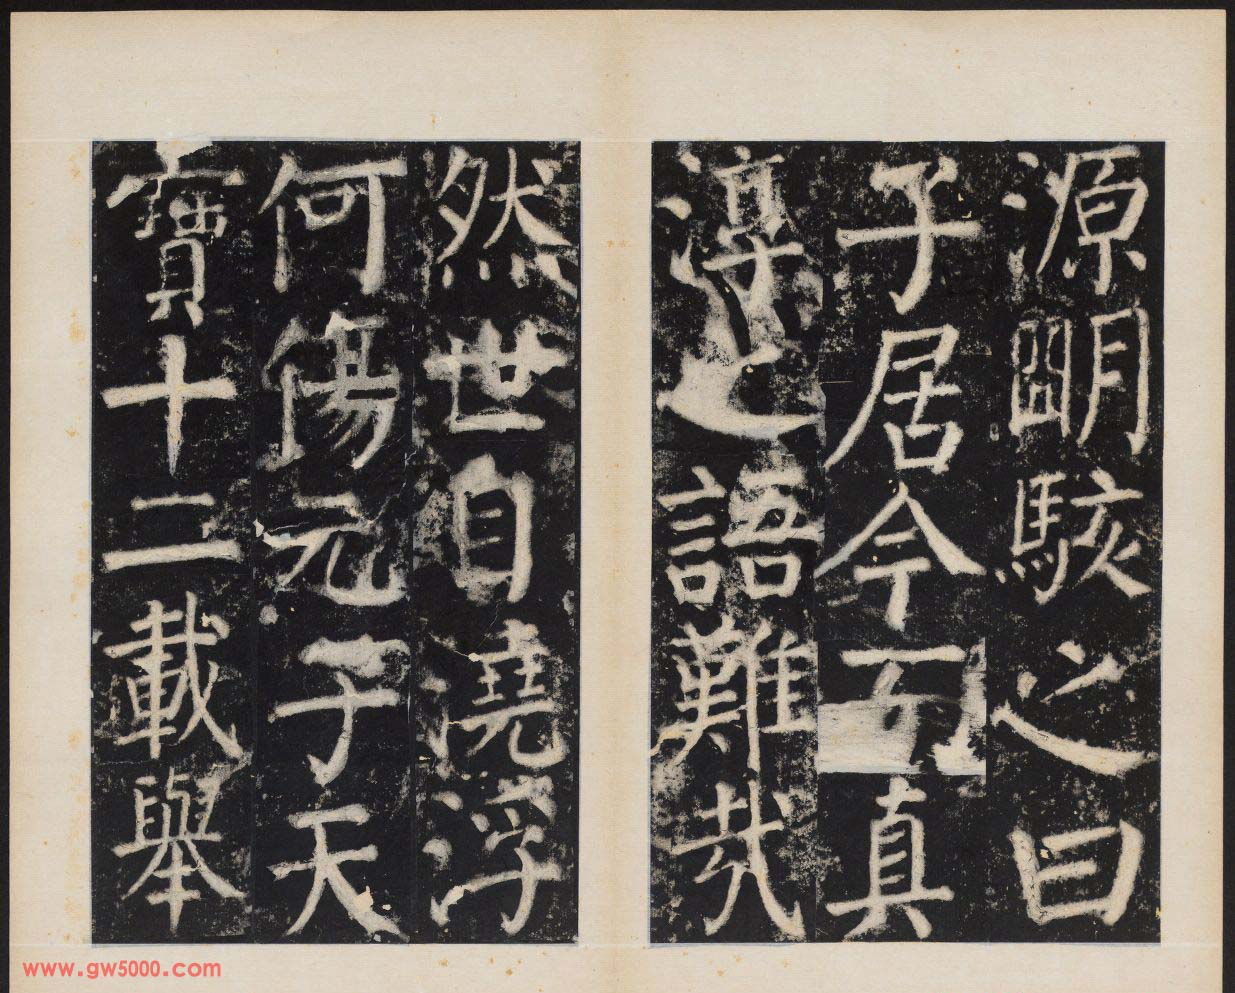 源朙駭之曰
子居今而真
淳之語難哉
然世自澆浮
何傷元子天
寶十二載舉
www.gw5000.com